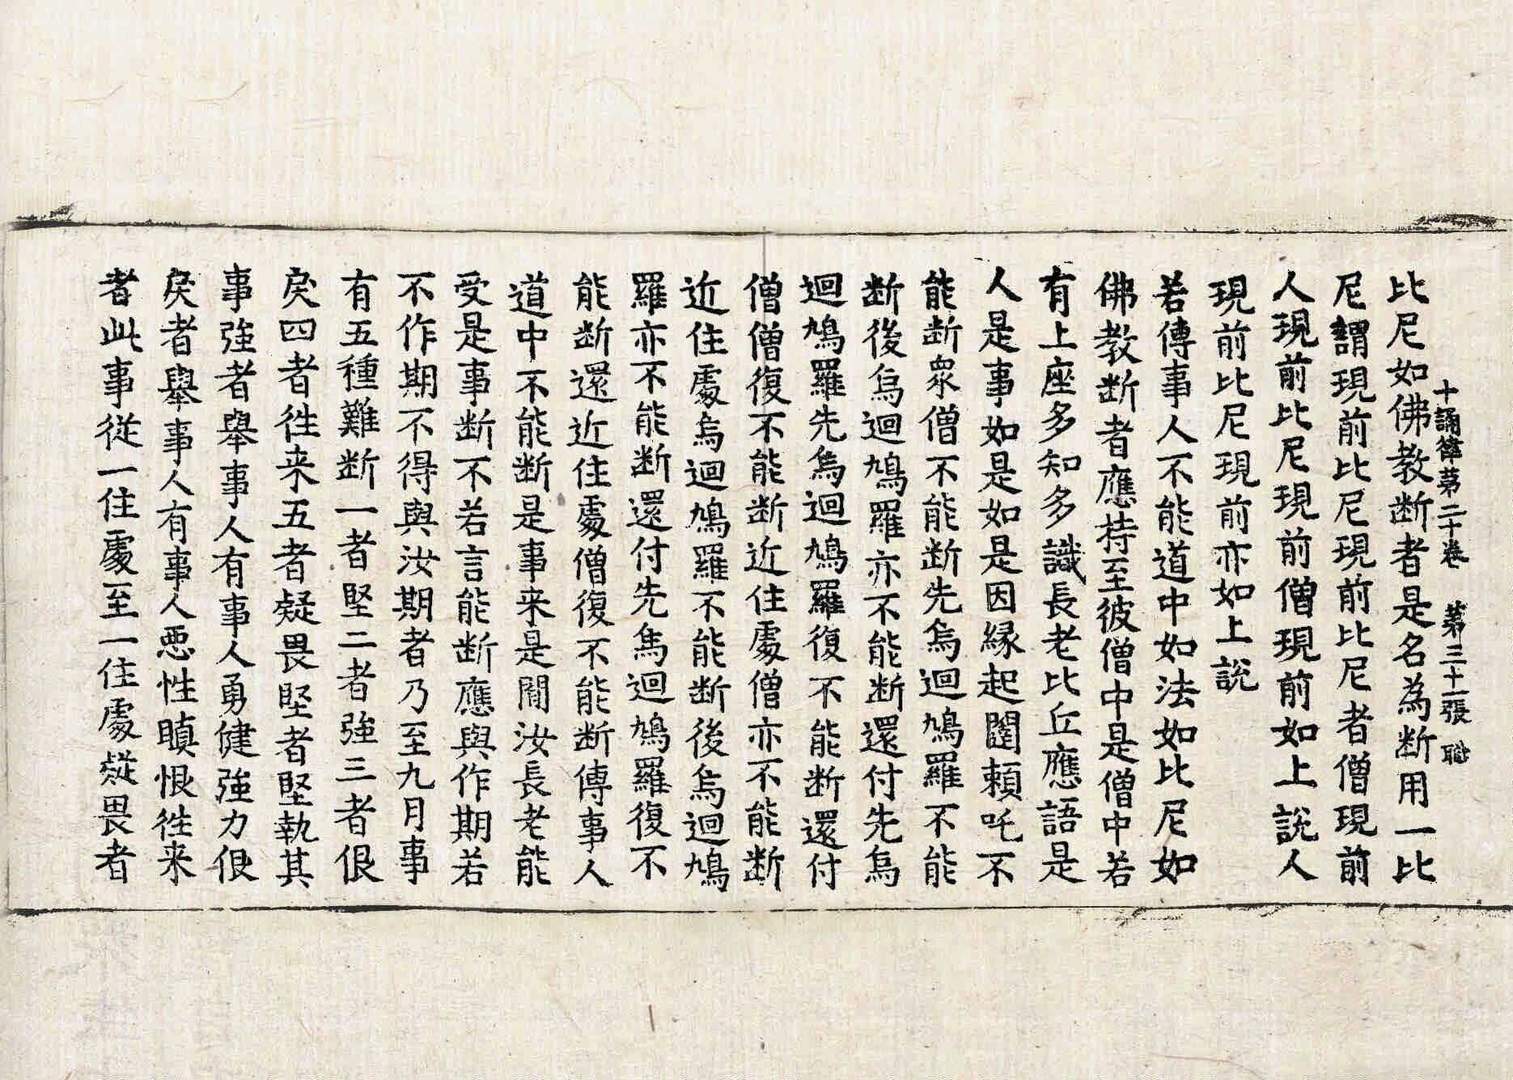 十誦律第二十卷　第三十一張　職
比尼如佛教断者是名為断用一比
尼謂現前比尼現前比尼者僧現前
人現前比尼現前僧現前如上說人
現前比尼現前亦如上說
若傳事人不能道中如法如比尼如
佛教断者應持至彼僧中是僧中若
有上座多知多識長老比丘應語是
人是事如是如是因緣起闥頼吒不
能断衆僧不能断先烏迴鳩羅不能
断後烏迴鳩羅亦不能断還付先烏
迴鳩羅先烏迴鳩羅復不能断還付
僧僧復不能断近住處僧亦不能断
近住處烏迴鳩羅不能断後烏迴鳩
羅亦不能断還付先烏迴鳩羅復不
能断還近住處僧復不能断傳事人
道中不能断是事来是間汝長老能
受是事断不若言能断應與作期若
不作期不得與汝期者乃至九月事
有五種難断一者堅二者強三者佷
戾四者徃来五者疑畏堅者堅執其
事強者舉事人有事人勇健強力佷
戾者舉事人有事人悪性瞋恨徃来
者此事従一住處至一住處疑畏者